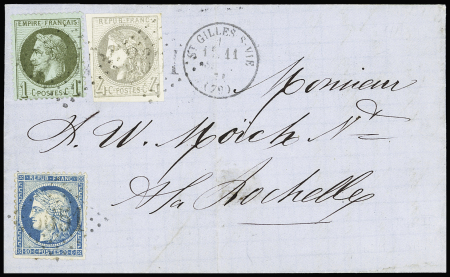 EMPIRE FRANÇAIS
1 C POSTES 1
REPUB. FRANC.
4 C POSTES 4
ST GILLES-S-VIE
11
(79)
Monsieur
H. W. Mörch Nd
à la Rochelle
REPUB. FRANC.
POSTES